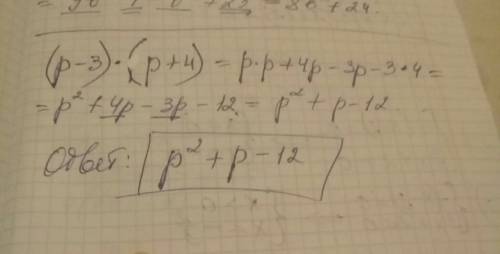 (p-3)·(p+4) = p·p+4p-3p-3·4=
= p² + 4p - 3p - 12 = p² + p-12
Ответ: p² + p - 12